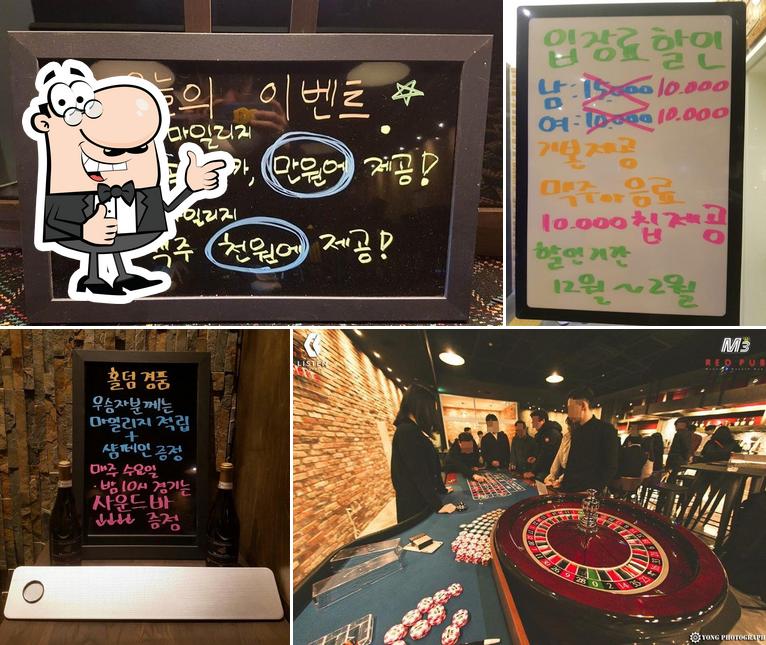 늘의 이벤트
마일리지
가, 만원에 제공!
마일리지
맥주 천원에 제공!
입장료 할인
남 : 15.000 10.000
여 : 10.000 10.000
기본제공
맥주 or 음료
10.000 칩 제공
할인기간
12월 ~ 2월
홀덤 경품
우승자분께는
마일리지 적립
+
샴페인 증정
매주 수요일
·밤 10시 경기는
사운드 바
↓↓↓↓ 증정
LISTEN
M3
RED PUB
YONG PHOTOGRAPH